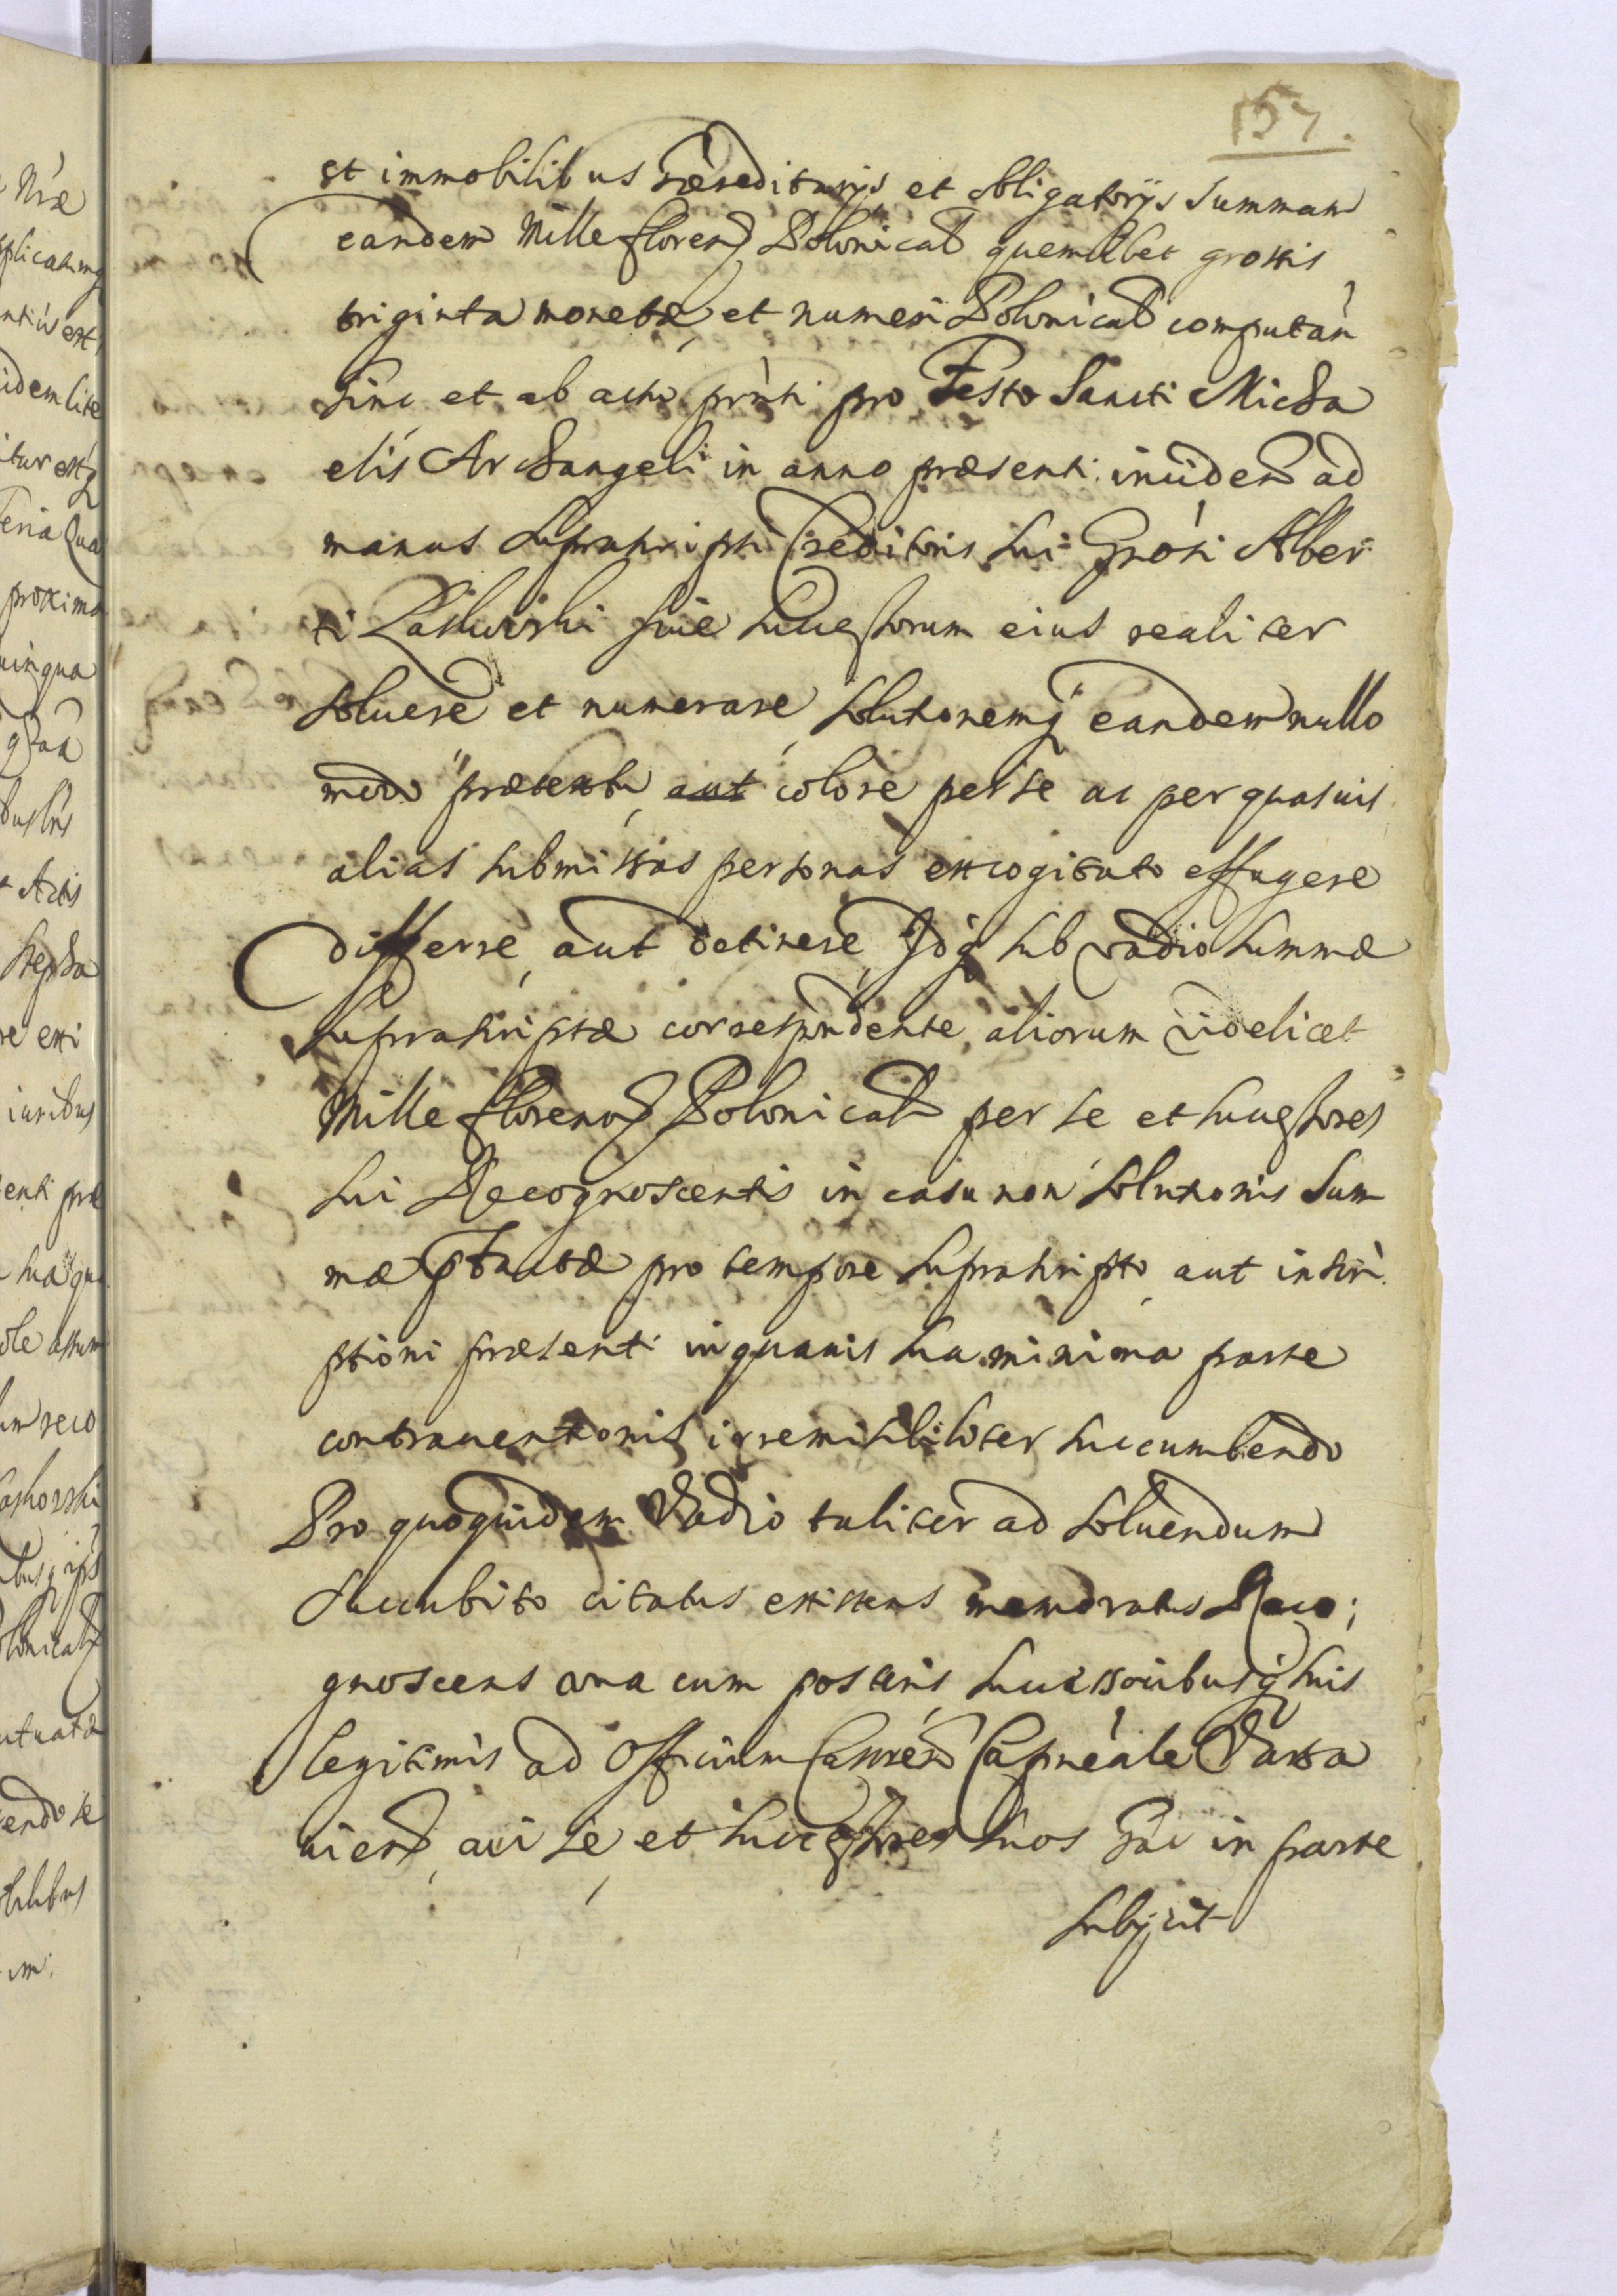 157.
et immobilibus hæreditarijs et obligatorijs Summam
eandem Mille floren Polonical quemlibet grossis
triginta monetæ et numeri Polonical computan
hinc et ab actu prnti pro Festo Sancti Micha
elis Archangeli in anno præsenti inuiden ad
manus suprascripti Creditoris sui Grosi Alber
ti siue successorum eius realiter
soluere et numerare solutionemq eandem nullo
modo prætextu colore per se ac per quasuis
alias submissas personas excogitato effugere
differre aut detinere Idq sub vadio summæ
suprascriptæ correspondente aliorum videlicet
Mille florenor Polonical per se et successores
sui Recognoscentis in casu non solutionis Sum
mæ pro tempore suprascripto aut inscri
ptioni præsenti in quauis sua minima parte
contrauentionis irremissibiliter succumbendo
Pro quoquidem Vadio taliter ad soluendum
succubito citatus existens memoratus Reco
gnoscens una cum posteris successoribusq suis
legitimis ad Officium Castren Capneale Varsa
uien cui se et successores suos hac in parte
subijcit
Nræ
plicatumq
idem lite
proxima
uinqua
Actis
iuribus
reco
endo se